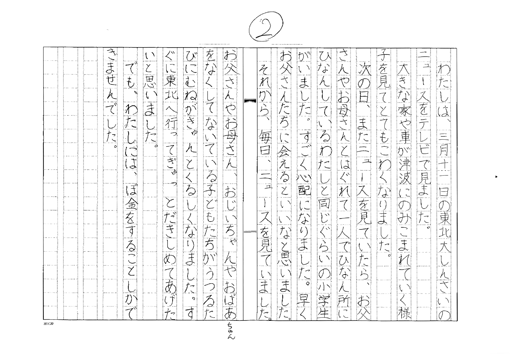 ②
わたしは、三月十一日の東北大しんさいの
ニュースをテレビで見ました。
大きな家や車が津波にのみこまれていく様
子を見てとてもこわくなりました。
次の日、またニュースを見ていたら、お父
さんやお母さんとはぐれて一人でひなん所に
ひなんしているわたしと同じぐらいの小学生
がいました。すごく心配になりました。早く
お父さんたちに会えるといいなと思いました。
それから、毎日、ニュースを見ていました。
お父さんやお母さん、おじいちゃんやおばあちゃん
をなくしてないている子どもたちがうつるた
びにむねがぎゅんとくるしくなりました。す
ぐに東北へ行ってぎゅっとだきしめてあげた
いと思いました。
でも、わたしには、ぼ金をすることしかで
きませんでした。